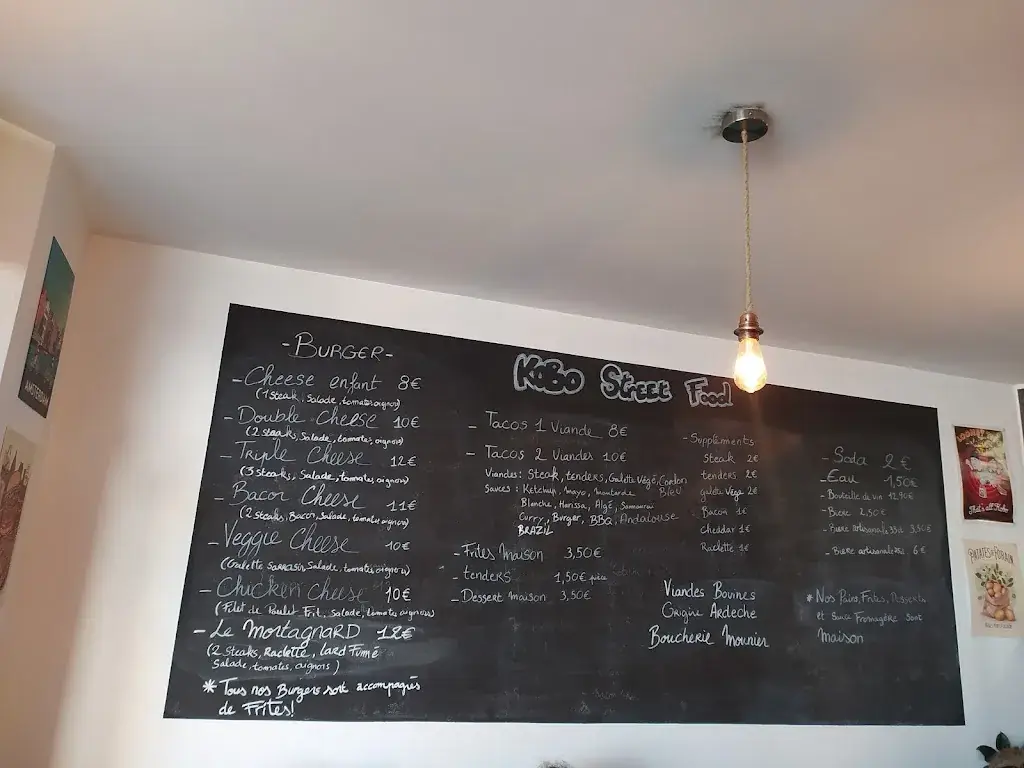 - BURGER -
- Cheese enfant 8€
(1 steak, Salade, tomates, oignons)
- Double Cheese 10€
(2 steaks, Salade, tomates, oignons)
- Triple Cheese 12€
(3 steaks, Salade, tomates, oignons)
- Bacon Cheese 11€
(2 steaks, Bacon, Salade, tomates, oignons)
- Veggie Cheese 10€
(Galette Sarrasin, Salade, tomates, oignons)
- Chicken Cheese 10€
(Filet de Poulet Frit, Salade, tomates, oignons)
- Le MontagnarD 12€
(2 Steaks, Raclette, Lard Fumé
Salade, tomates, oignons)
* Tous nos Burgers sont accompagnés
de Frites!
KoBo Street Food
- Tacos 1 Viande 8€
- Tacos 2 Viandes 10€
Viandes: Steak, tenders, Galette Végé, Cordon
Bleu
Sauces: Ketchup, mayo, moutarde
Blanche, Harissa, Algé, Samourai
Curry, Burger, BBQ, Andalouse
BRAZIL
- Frites Maison 3,50€
- tenders 1,50€ pièce
- Dessert maison 3,50€
- Suppléments
Steak 2€
tenders 2€
galette Végé 2€
Bacon 1€
cheddar 1€
Raclette 1€
Viandes Bovines
Origine Ardeche
Boucherie Mounier
- Soda 2€
- Eau 1,50€
- Bouteille de vin 12,90€
- Biere 2,50€
- Biere artisanale 33cl 3,50€
- Biere artisanale 6€
* Nos Pains, Frites, Desserts
et Sauce Fromagère sont
Maison
AMSTERDAM